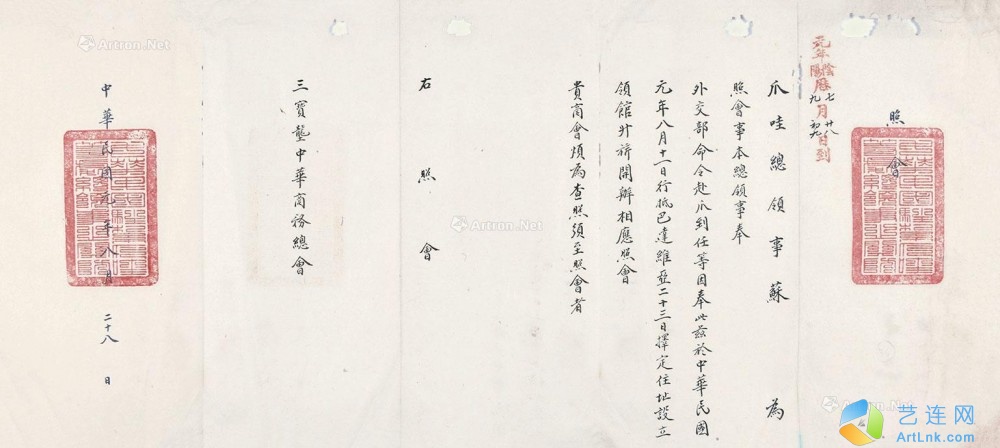 照會
元年陰陽曆七九月廿八初九日到
爪哇總領事蘇 為
照會事本總領事奉
外交部命令赴爪到任等因奉此茲於中華民國
元年八月十一日行抵巴達維亞二十三日擇定住址設立
領館升旂開辦相應照會
貴商會煩為查照須至照會者
右照會
三寶壟中華商務總會
中華民國元年八月二十八日
Artron.Net
Artron.Net
Artron.Net
Artron.Net
艺连网
ArtLnk.com